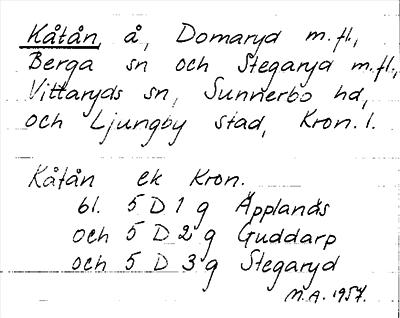 Kåtån, å, Domaryd m.fl.,
Berga sn och Stegaryd m.fl.,
Vittaryds sn, Sunnerbo hd,
och Ljungby stad, Kron. l.
Kåtån ek Kron.
bl. 5 D 1 g Äpplanäs
och 5 D 2 g Guddarp
och 5 D 3 g Stegaryd
M.A. 1957.